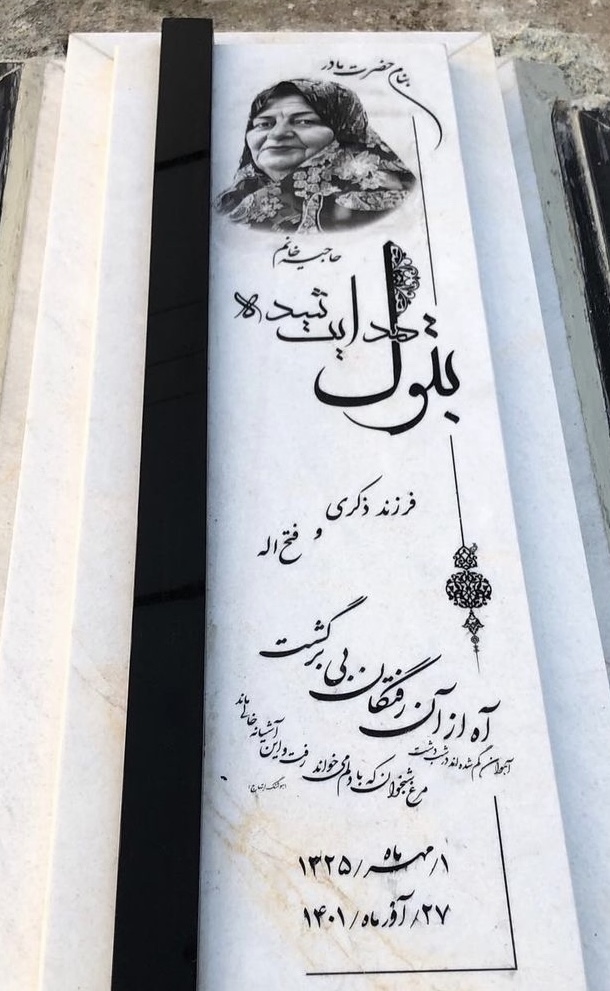 بنام حضرت مادر
حاجیه خانم
بتول هدایت ثیده
فرزند ذکری
و
فتح اله
آه از آن رفتگان بی برگشت
آهوان گم شده اند در شب دشت
مرغ شبخوان که با دلم می خواند رفت و این آشیانه خالی ماند
(هوشنگ ابتهاج)
۱/مهر ماه/۱۳۲۵
۲۷/آذر ماه/۱۴۰۱